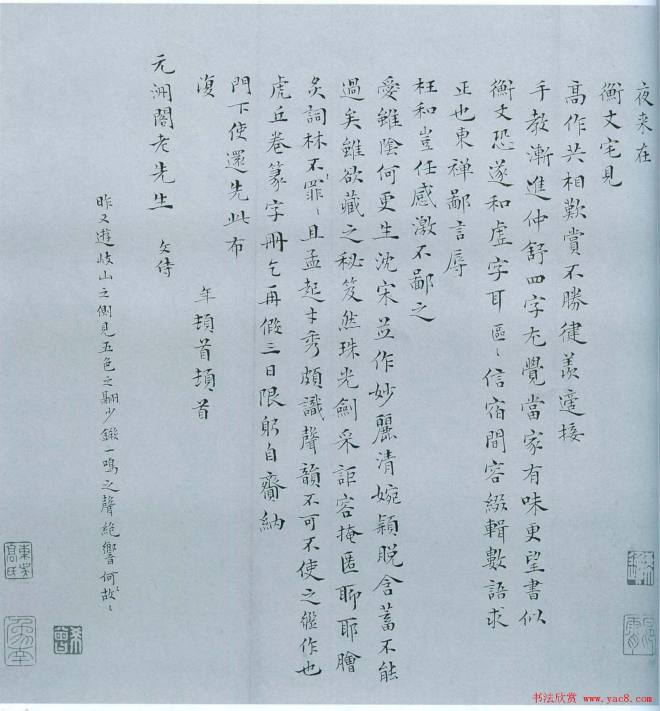 夜来在
衡文宅見
高作共相歎賞不勝健羨遽接
手教漸進仲舒四字尤覺當家有味更望書似
衡文恐遂和虛字耳區〻信宿間容綴輯數語求
正也東禪鄙言辱
枉和豈任感激不鄙之
愛雖陰何更生沈宋並作妙麗清婉穎脱含蓄不能
過矣雖欲藏之秘笈然珠光劍采詎容掩匿聊耶膾
炙詞林不罪〻且孟起才秀頗識聲韻不可不使之繼作也
虎丘卷篆字冊乞再假三日限躬自賫納
門下使還先此布
復
年頓首頓首
元洲閣老先生 文侍
昨又遊岐山之側見五色之翮少鎩一鳴之聲絶響何故〻
书法欣赏 www.yac8.com